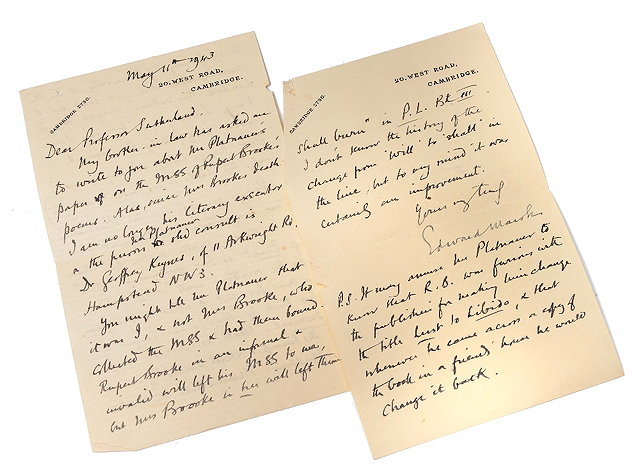 May 11th 1943
CAMBRIDGE 2760.
20, WEST ROAD,
CAMBRIDGE.
Dear Professor Sutherland.
My brother-in-law has asked me
to write to you about Mr Platnauer's
paper on the MSS of Rupert Brooke's
poems. Alas, since Mrs Brooke's death
I am no longer his literary executor
& the person Mr Platnauer shd consult is
Dr Geoffrey Keynes, of 11 Arkwright Rd.
Hampstead NW3.
You might tell Mr Platnauer that
it was I, & not Mrs Brooke, who
collected the MSS & had them bound.
Rupert Brooke in an informal &
invalid will left his MSS to me,
but Mrs Brooke in her will left them
CAMBRIDGE 2760.
20, WEST ROAD,
CAMBRIDGE.
shall burn" in P.L. Bk III.
I don't know the history of the
change from 'will' to 'shall' in
the line, but to my mind it was
certainly an improvement.
Yours sincerely
Edward Marsh
P.S. It may amuse Mr Platnauer to
know that R.B. was furious with
the publisher for making him change
the title Lust to Libido, & that
whenever he came across a copy of
the book in a friend's house he would
change it back.